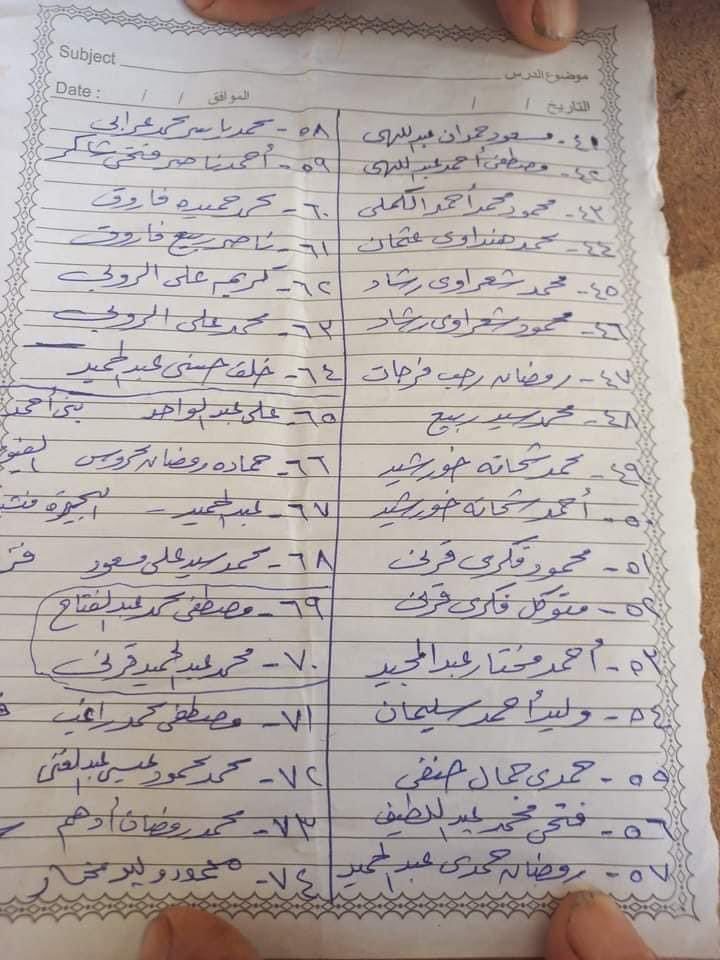 Subject موضوع الدرس
Date : / / الموافق / / التاريخ
٤١- مسعود حمدان عبد اللهى
٤٢- مصطفى أحمد عبد اللهى
٤٣- محمود محمد أحمد الكملى
٤٤- محمد هنداوى عثمان
٤٥- محمد شعراوى رشاد
٤٦- محمود شعراوى رشاد
٤٧- رمضان رجب فرجات
٤٨- محمد سيد ربيع
٤٩- محمد شحاته خورشيد
٥٠- أحمد شحاته خورشيد
٥١- محمود فكرى قرنى
٥٢- متوكل فكرى قرنى
٥٣- أحمد مختار عبد المجيد
٥٤- وليد أحمد سليمان
٥٥- حمدى جمال حنفى
٥٦- فتحى محمد عبد اللطيف
٥٧- رمضان حمدى عبد الحميد
٥٨- محمد ياسر محمد عرابى
٥٩- أحمد ناصر فتحى شاكر
٦٠- محمد حميده فاروق
٦١- ناصر ربيع فاروق
٦٢- كريم على الروبى
٦٣- محمد على الروبى
٦٤- خلف حسنى عبد الحميد
٦٥- على عبد الواحد بنى أحمد
٦٦- حماده رمضان محروس
٦٧- عبد الحميد -
٦٨- محمد سيد على مسعود
٦٩- مصطفى محمد عبد الفتاح
٧٠- محمد عبد الحميد قرنى
٧١- مصطفى محمد راغب
٧٢- محمد محمود عيسى عبد الغنى
٧٣- محمد رمضان أدهم
٧٤- محمود وليد مختار